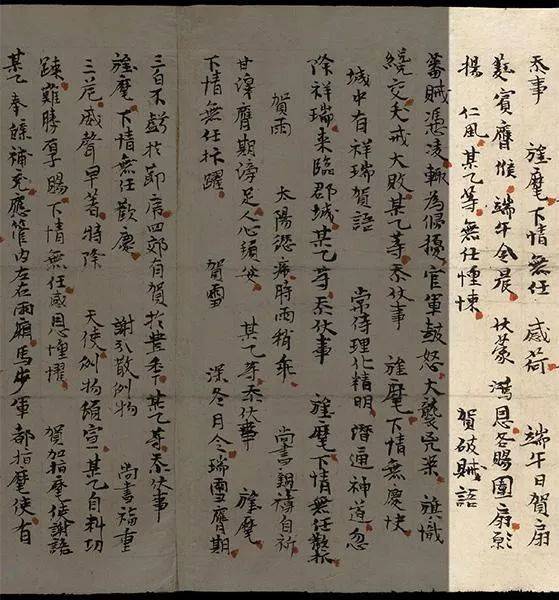 忝事　旌麾下情無任　感荷　端午日賀扇
蕤賓膺候端午令晨　伏蒙　鴻恩各賜團扇影
揚　仁風某乙等無任悚悚　賀破賊語
蕃賊憑凌輒為侵擾官軍鼓怒大襲兇渠　旌幟
繞交犬戎大敗某乙等忝伏事　旌麾下情無慶快
城中有祥瑞賀語　常侍理化精明潛通神道忽
除祥瑞來臨郡城某乙等忝伏事　旌麾下情無任歡抃
賀雨　太陽愆席時雨稍乖　尚書親禱自祈
甘澤膺期滂足人心須安　某乙等忝伏事　旌麾
下情無任抃躍　賀雪　深冬月令瑞雪膺期
三白不虧於節席四郊自賀於豊年某乙等忝伏事
旌麾下情無任歡慶　謝司散例物　尚書福重
三危威聲早著特降　天使例物頒宣某乙自料功
踈難勝厚賜下情無任感恩惶懼　賀加指麾使謝語
某乙奉餘補充應管內左右兩廂馬步軍都指麾使有